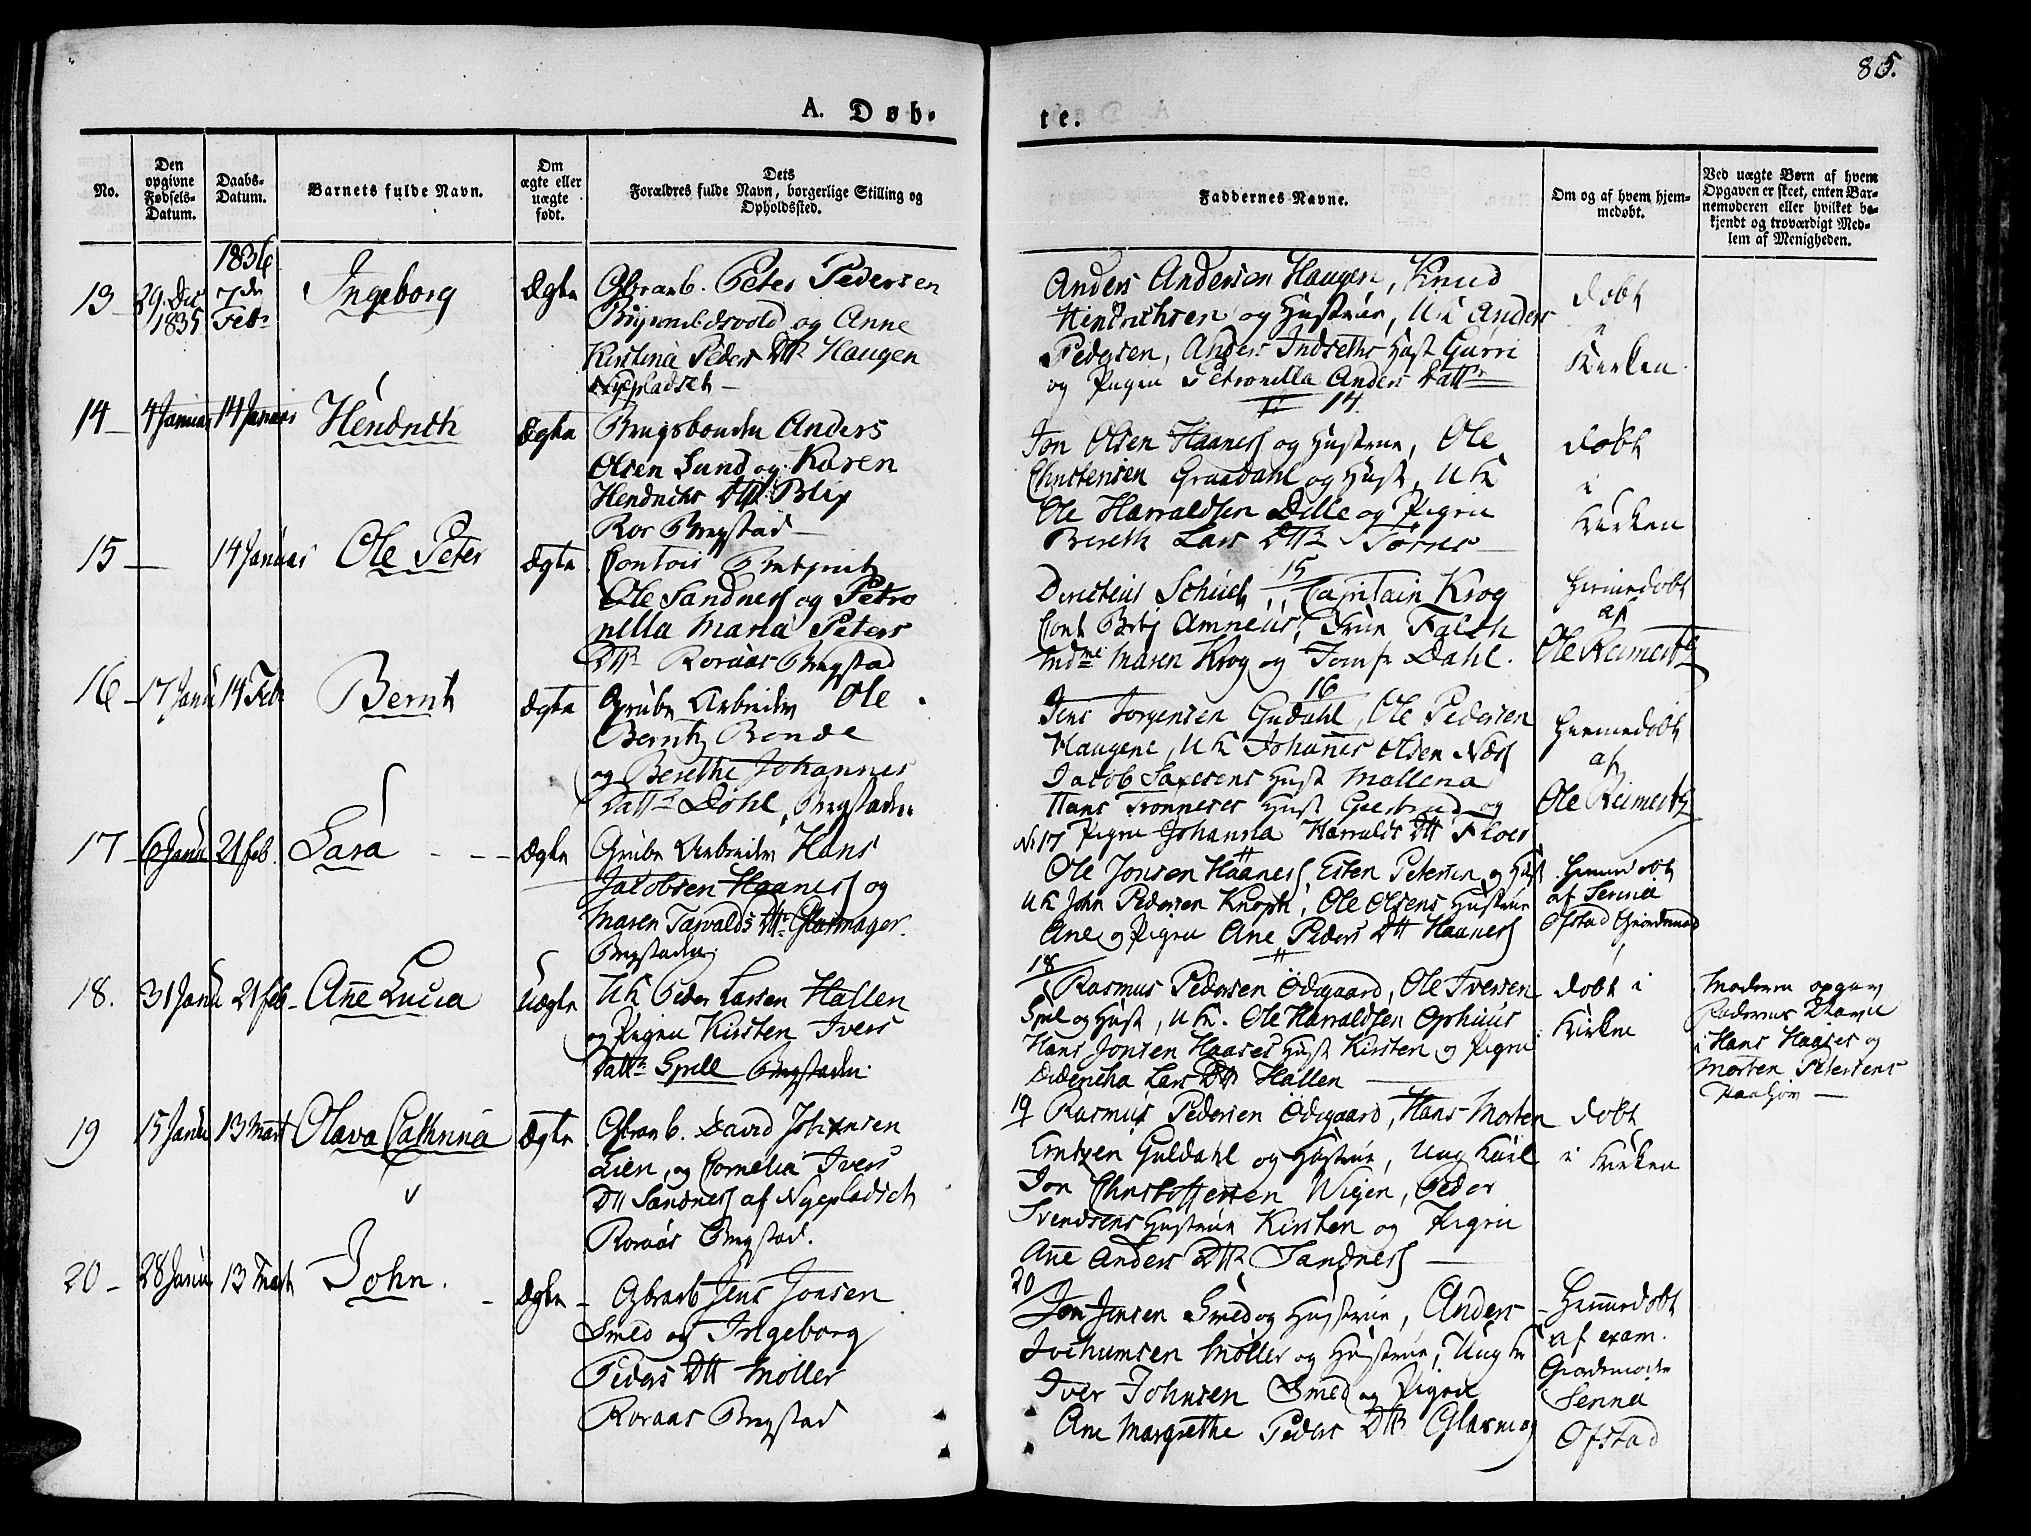 85.
A. Døb-
te.
No.
Den opgivne Fødsels-Datum.
Daabs-Datum.
Barnets fulde Navn.
Om ægte eller uægte født.
Dets Forældres fulde Navn, borgerlige Stilling og Opholdssted.
Faddernes Navne.
Om og af hvem hjem-medøbt.
Ved uægte Børn af hvem Opgaven er skeet, enten Bar-nemoderen eller hvilket be-kjendt og troværdigt Med-lem af Menigheden.
1836
13 29. Dec 1835 7de Febr Ingeborg Ægte
Peter Pedersen
og Anne
Kirstina Peders Dtt Haugen
Nyepladset
Anders Andersen Haugen, Knud
Hendrichsen og Hustrue, Uk Anders
Pedersen, Anders Indseths Hust Gurri
og Pigen Petronilla Anders Dattr
Døbt
i
Kirken.
14 4 Januar 14 Januar Hendrich Ægte
Anders
Olsen Lund og Karen
Hendrichs Dtt Blix
Ror Bergstad
14
Jon Olsen Haaness og Hustrue, Ole
Christensen Graadahl og Hust, Uk
Ole Harraldsen Dille og Pigen
Bereth Lars Dtt
Døbt
i
Kirken
15 14 Januar Ole Peter Ægte
Contoir Betjent
Ole Sandness og Petro
nella Maria Peters
Dtt Roraas Bergstad
15
Directeur Schult, Capitain Krog
Cont Betj Amneus, Frue Falch
Mdme Maren Krog og Jomfr Dahl.
Hjemmedøbt
af
Ole Reimerth
16 17 Janu 14 Febr Bernt Ægte
Grube Arbeider Ole
Bernt Bonde
og Berethe Johannes
Dattr Døhl, Bergstaden
16
Jens Jorgensen Guldahl, Ole Pedersen
Haugene, Uk Johanes Olsen Næss
Jacob Saxesens Hust Mallena
Hans Tronneses Hust og
Pigen Johanna Harralds Dtt Floer
Hjemmedøbt
af
Ole Reimerth
17 6 Janu 21 feb. Lara Ægte
Grube Arbeider Hans
Jacobsen Haaness og
Maren Tarvalds Dtt Glasmager.
Bergstaden
No 17
Ole Jonsen Haaness, Esten Petersen og Hust
Uk John Pedersen Knoph, Ole Olsens Hustrue
Ane og Pigen Ane Peders Dtt Haaness
Hjemmedøbt
af Serina
Ofstad Giordemod
18. 31 Janu 21 feb Ane Lucia Uægte
Uk Peder Larsen Hallen
og Pigen Kirsten Ivers
Dattr Spell Bergstaden.
18
Rasmus Pedersen Ødegaard, Ole Iversen
Spel og Hust, Uk. Ole Harraldsen Ophuus
Hans Jonsen Haases Hust Kirsten og Pigen
Lars Dtt Hallen
Døbt i
Kirken
Moderen opgav
Faderens Navn
i Hans Haases og
Morten Petersens
Paahør
19 15 Janu 13 Mart Olava Cathrina Ægte
David Johnsen
Lien, og Cornelia Ivers
Dtt Sandness af Nyepladset
Roraas Bergstad.
19
Rasmus Pedersen Ødegaard, Hans Morten
Entzen Guldahl og Hustrue, Ung Karl
Jon Christoffersen Wigen, Peder
Svendsens Hustrue Kirsten og Pigen
Ane Anders Dtt Sandness
Døbt
i Kirken
20 28 Janu 13 Mart John. Ægte
Jens Jonsen
Smed og Ingeborg
Peders Dtt Moller
Roraas Bergstad
20
Jon Jensen Smed og Hustrue, Anders
Jochumsen Moller og Hustrue, Ung K
Iver Johnsen Smed og Pigen
Ane Margrethe Peders Dtt Glasmag
Hjemmedøbt
af exam.
Giordemoder
Serina
Ofstad